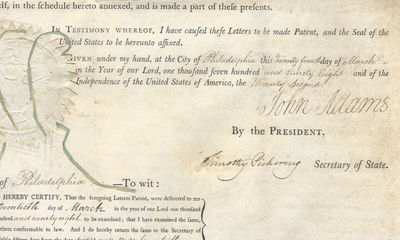 elf, in the schedule hereto annexed, and is made a part of these presents.
In Testimony whereof, I have caused these Letters to be made Patent, and the Seal of the
United States to be hereunto affixed.
Given under my hand, at the City of Philadelphia this Twenty fourth day of March
in the Year of our Lord, one thousand seven hundred and ninety Eight and of the
Independence of the United States of America, the Twenty Second.
John Adams
By the President,
Timothy Pickering Secretary of State.
of Philadelphia —To wit:
HEREBY CERTIFY, That the foregoing Letters Patent, were delivered to me
twentieth day of March in the year of our Lord one thousand
ndred and ninety eight to be examined; that I have examined the same,
them conformable to law. And I do hereby return the same to the Secretary of